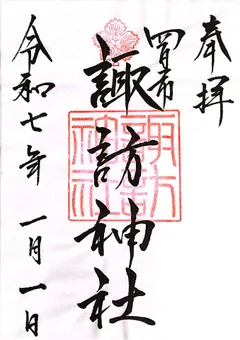 奉拝
四日市
諏訪神社
諏訪
神社
令和七年 一月一日